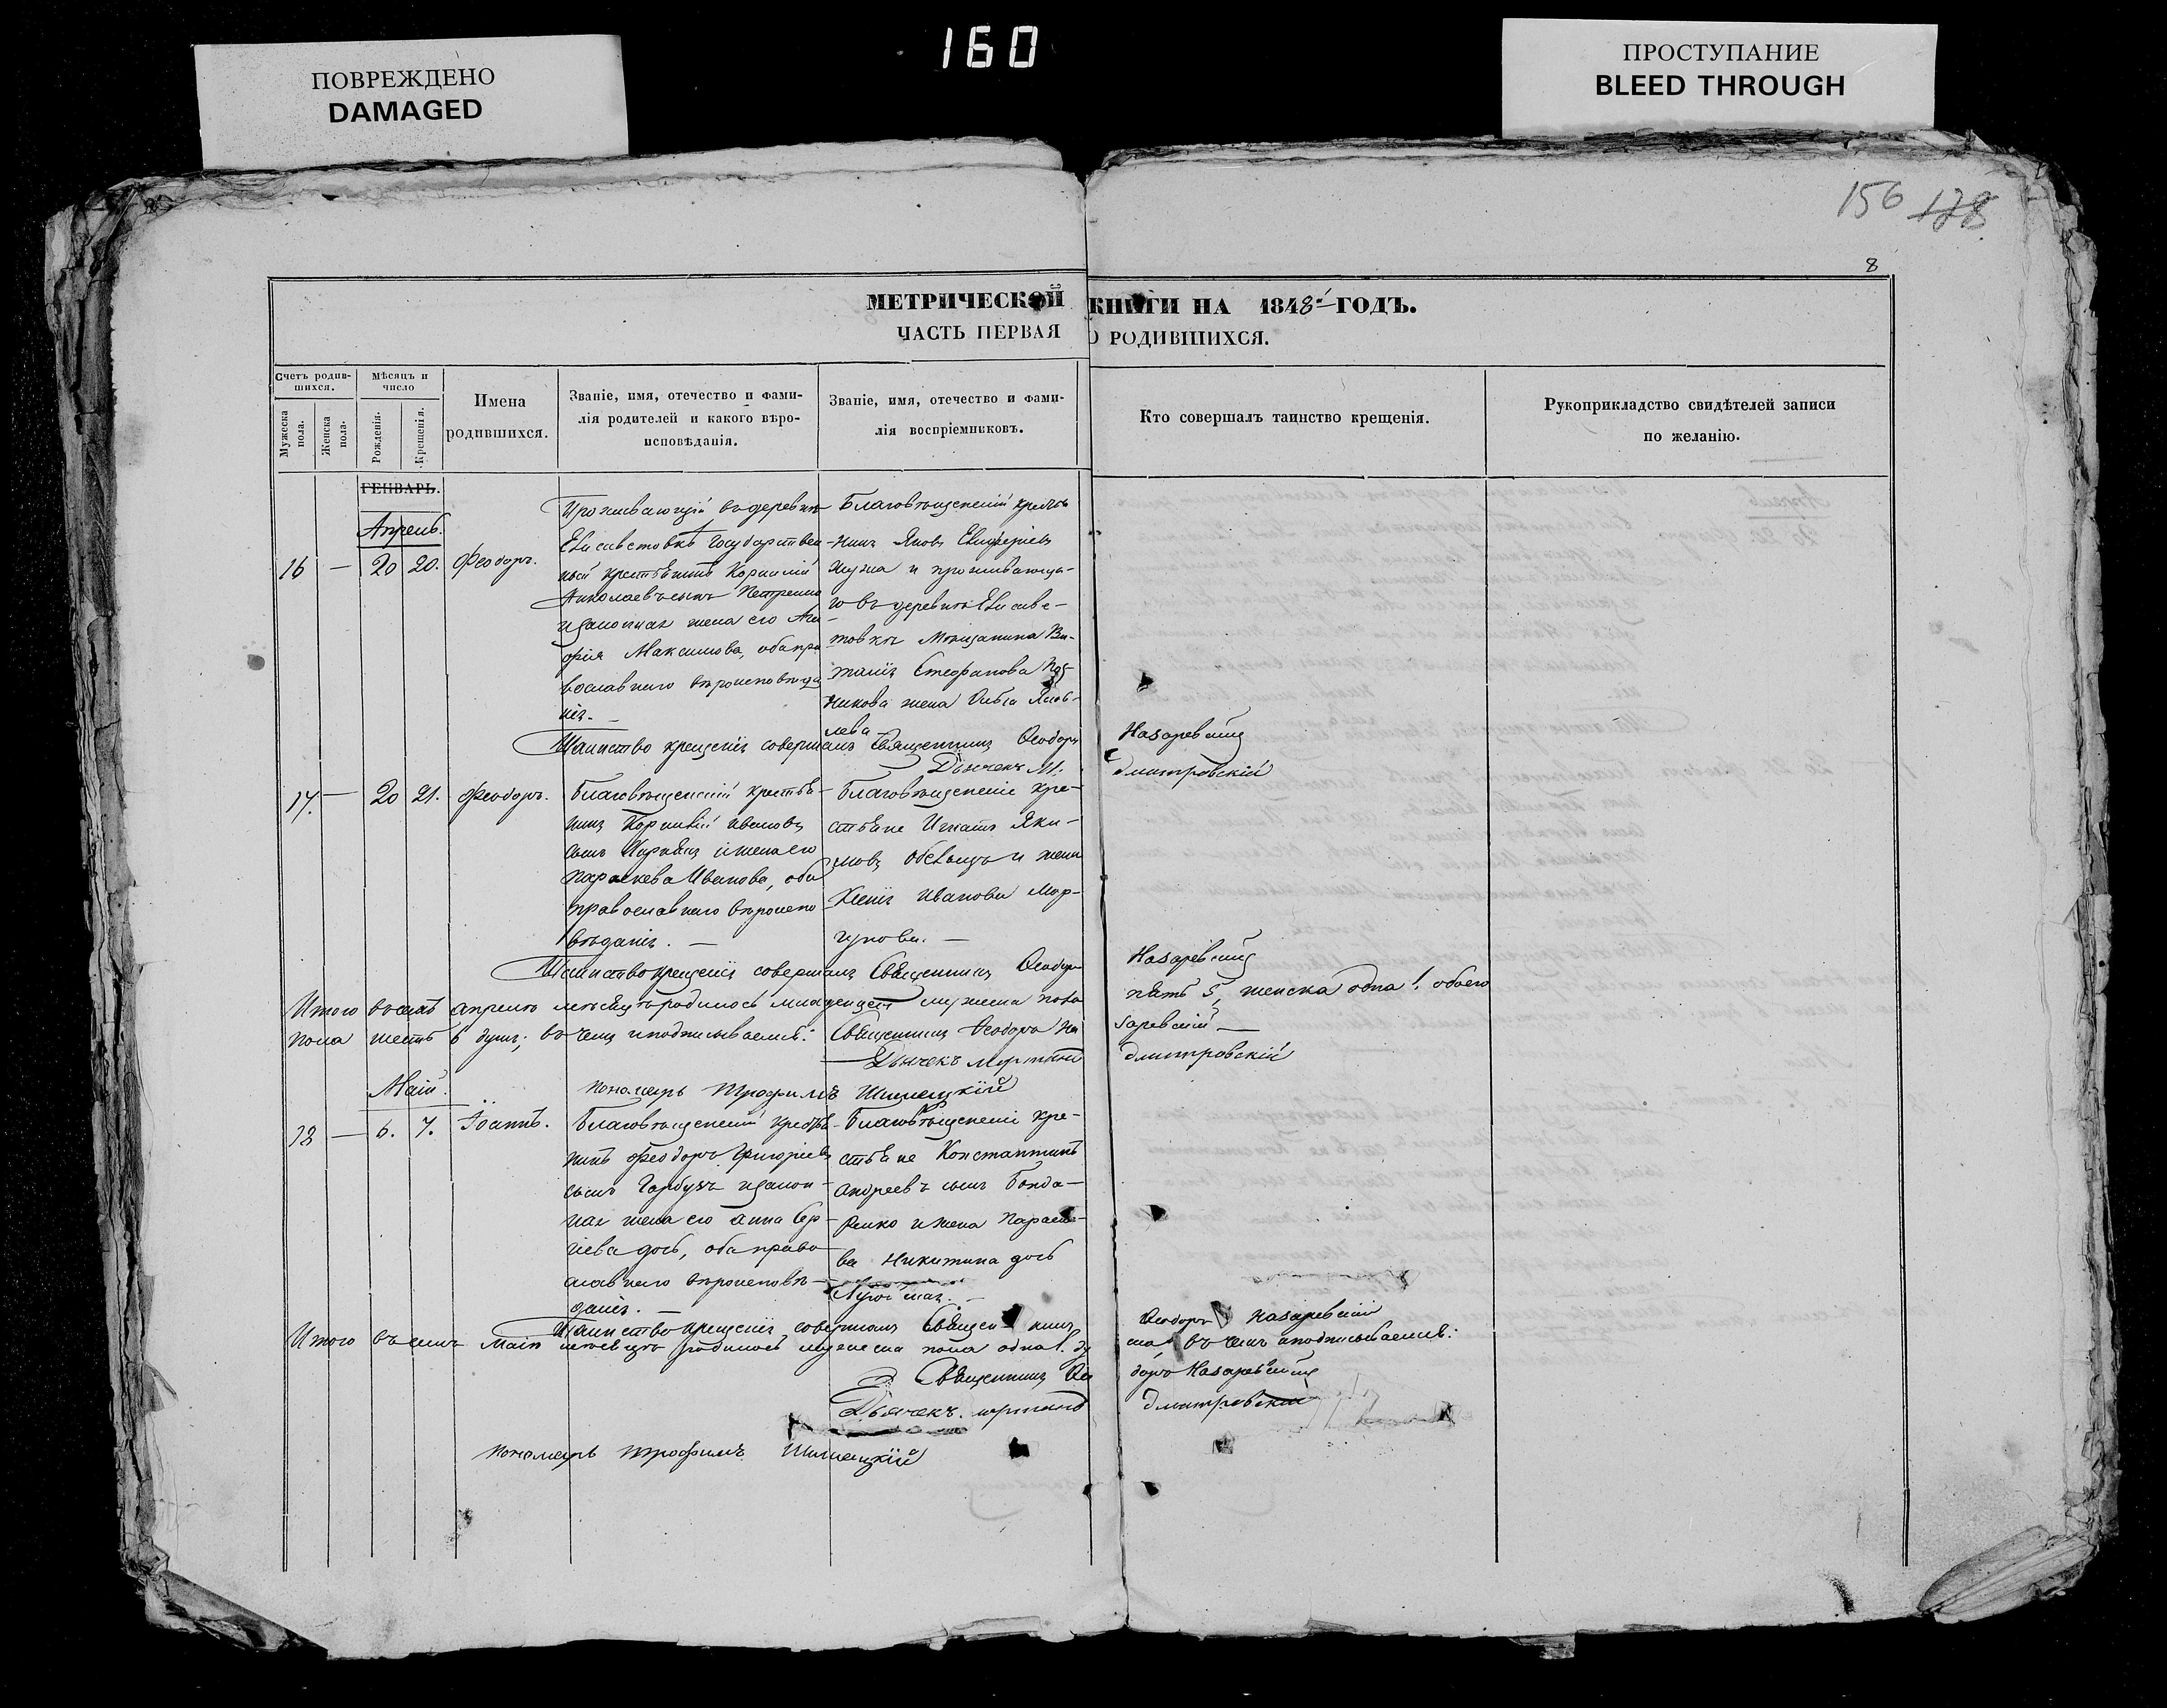 160
ПОВРЕЖДЕНО
DAMAGED
ПРОСТУПАНИЕ
BLEED THROUGH
156 128
8
МЕТРИЧЕСКОЙ КНИГИ НА 1848й ГОДЪ.
ЧАСТЬ ПЕРВАЯ О РОДИВШИХСЯ.
Счетъ родив-
шихся.
Мужеска
пола.
Женска
пола.
Мѣсяцъ и
число
Рожденія.
Крещенія.
Имена
родившихся.
Званіе, имя, отечество и фами-
лія родителей и какого вѣро-
исповѣданія.
Званіе, имя, отечество и фами-
лія воспріемниковъ.
Кто совершалъ таинство крещенія.
Рукоприкладство свидѣтелей записи
по желанію.
ГЕНВАРЬ.
Апрель.
16 — 20 20. Феодоръ.
Проживающій въ деревнѣ
Елисаветовкѣ Государствен
ный крестьянинъ Корнилій
Николаевъ сынъ
и законная жена его
Максимова, оба пра
вославнаго вѣроисповѣда
нія. —
Благовѣщенскій крестья
нинъ Яковъ
и проживающа-
го въ деревнѣ Елисаве-
товкѣ Мѣщанина
Стефанова
жена Ольга Яков-
лева
Таинство крещенія совершалъ Священникъ Феодоръ Назаревскій
Дьячекъ М. Дмитровскій
17. — 20 21. Феодоръ.
Благовѣщенскій крестья-
нинъ Корнилій Ивановъ
сынъ и жена его
Параскева Иванова, оба
православнаго вѣроиспо
вѣданія. —
Благовѣщенскіе кре-
стьяне Игнатъ Яки-
мовъ и жена
Ксенія Иванова Мор-
гунова. —
Таинство крещенія совершалъ Священникъ Феодоръ Назаревскій
Итого въ семъ апрелѣ мѣсяцѣ родилось младенцевъ мужеска пола пять 5, женска одна 1. обоего
пола шесть 6 душъ; въ чемъ и подписываемся: Священникъ Феодоръ Назаревскій —
Дьячекъ Мартинъ Дмитровскій
Пономарь Трофимъ
Май.
18 — 6. 7. Іоаннъ.
Благовѣщенскій крестья
нинъ Феодоръ Григоріевъ
сынъ Гарбузъ и закон-
ная жена его Анна Сер-
гіева дочь, оба право
славнаго вѣроисповѣ-
данія. —
Благовѣщенскіе кре-
стьяне Константинъ
Андреевъ сынъ Бонда-
ренко и жена Параске-
ва Никитина дочь
Таинство крещенія совершалъ Священникъ Феодоръ Назаревскій
Итого въ семъ Маіѣ мѣсяцѣ родилось мужеска пола одна 1. душа, въ чемъ и подписываемся:
Священникъ Феодоръ Назаревскій
Дьячекъ Мартинъ Дмитровскій
Пономарь Трофимъ